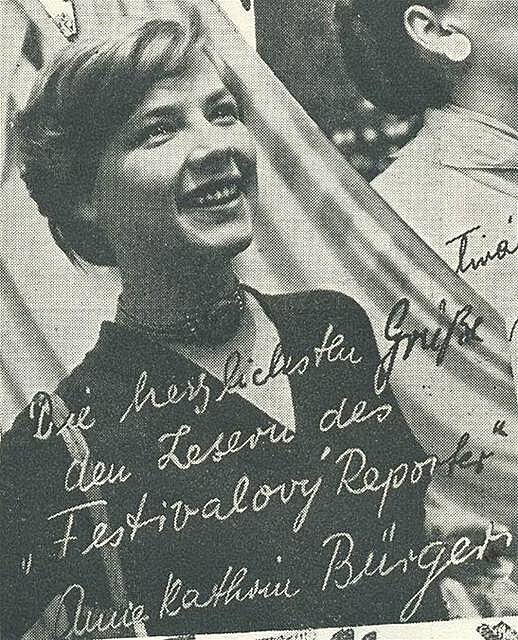 Die herzlichsten Grüße
den Lesern des
„Festivalový Reporter“
Annekathrin Bürger